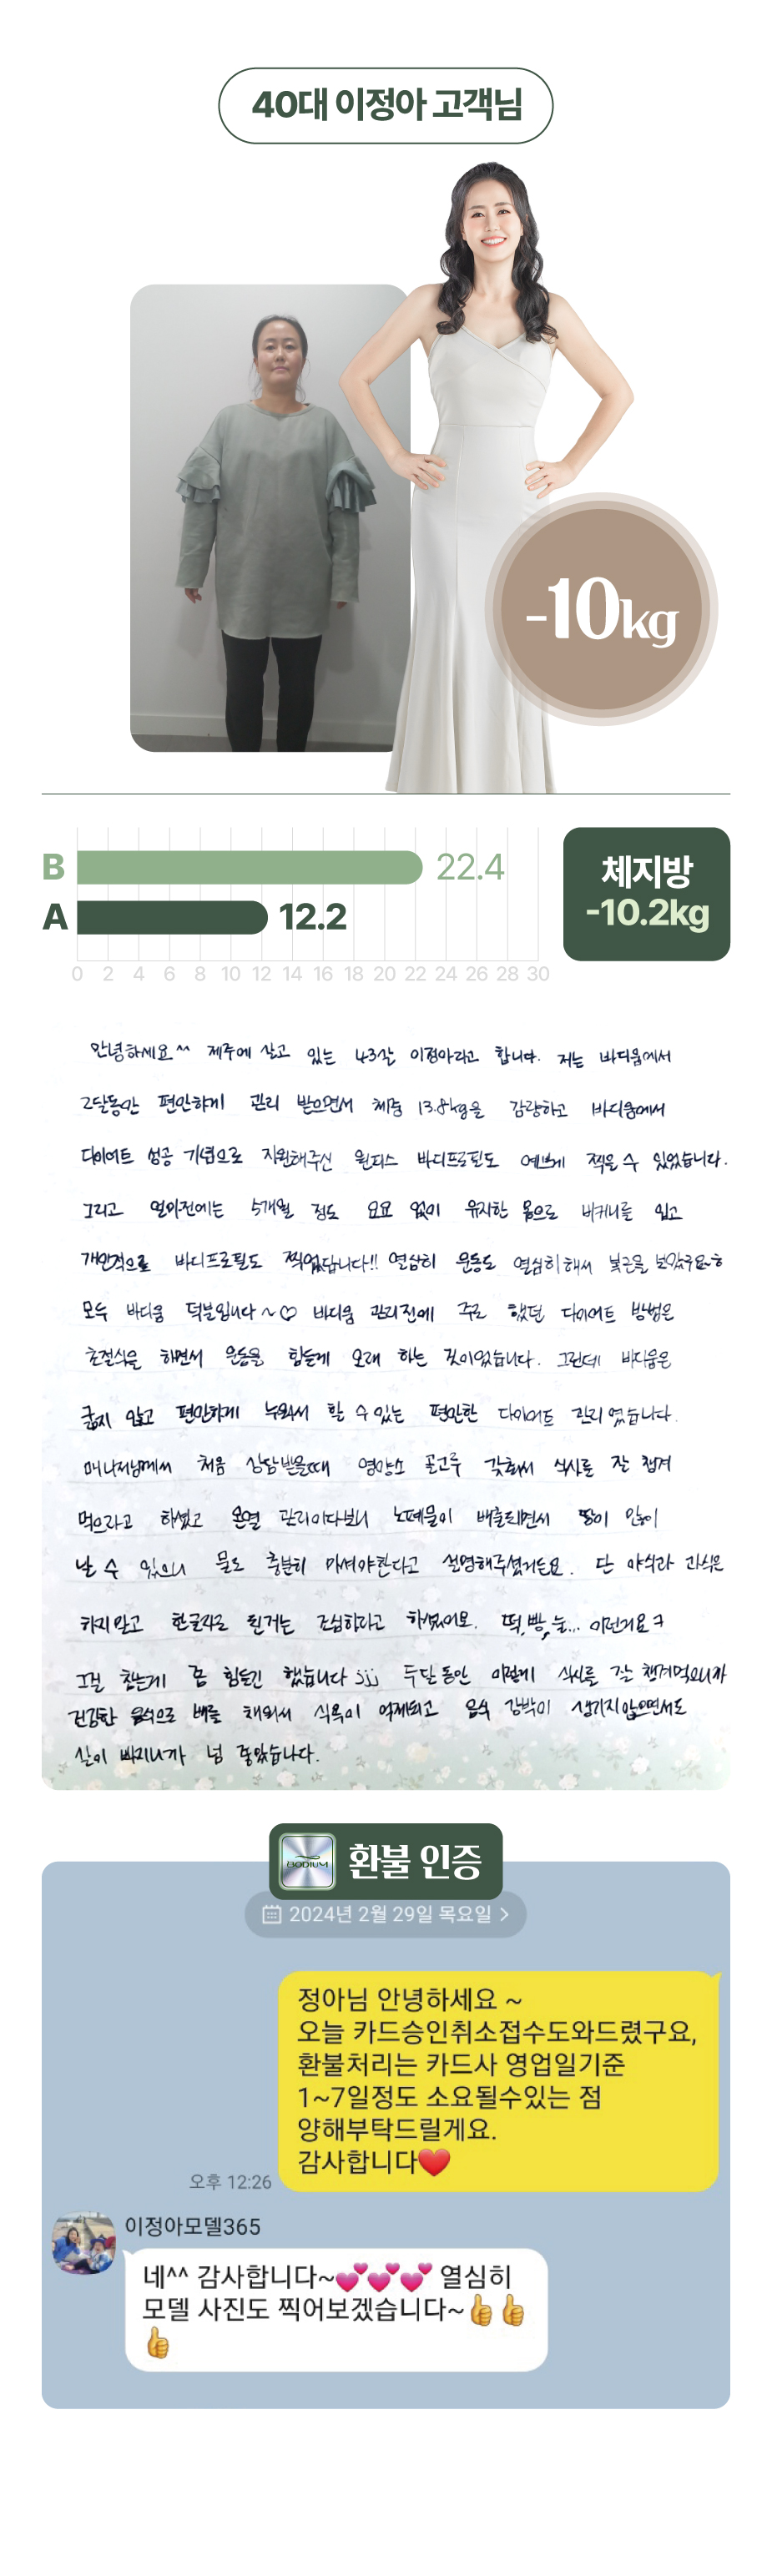 40대 이정아 고객님
-10kg
B 22.4
A 12.2
0 2 4 6 8 10 12 14 16 18 20 22 24 26 28 30
체지방
-10.2kg
안녕하세요^^ 제주에 살고 있는 43살 이정아라고 합니다. 저는 바디움에서
2달동안 편안하게 관리 받으면서 체중 13.8kg을 감량하고 바디움에서
다이어트 성공 기념으로 지원해주신 원피스 바디프로필도 예쁘게 찍을 수 있었습니다.
그리고 얼마전에는 5개월 정도 요요 없이 유지한 몸으로 비키니를 입고
개인적으로 바디프로필도 찍었답니다!! 열심히 운동도 열심히 해서
모두 바디움 덕분입니다~♡ 바디움 관리전에 주로 했던 다이어트 방법은
초절식을 하면서 운동을 힘들게 오래 하는 것이었습니다. 그런데 바디움은
굶지 않고 편안하게 누워서 할 수 있는 편안한 다이어트 관리였습니다.
매니저님께서 처음 상담받을때 영양소 골고루 갖춰서 식사를 잘 챙겨
먹으라고 하셨고 온열 관리이다보니 노폐물이 배출되면서 땀이 많이
날 수 있으니 물도 충분히 마셔야한다고 설명해주셨거든요. 단 야식과 간식은
하지말고 한글자로 된거는 조심하라고 하셨어요. 떡, 빵, 술... 이런거요ㅋ
그걸 참는게 좀 힘들긴 했습니다 두달동안 이렇게 식사를 잘 챙겨먹으니까
건강한 음식으로 배를 채워서 식욕이 억제되고 음식 강박이 생기지않으면서도
살이 빠지니까 넘 좋았습니다.
BODIUM 환불 인증
2024년 2월 29일 목요일 >
정아님 안녕하세요 ~
오늘 카드승인취소접수도와드렸구요,
환불처리는 카드사 영업일기준
1~7일정도 소요될수있는 점
양해부탁드릴게요.
감사합니다❤️
오후 12:26
이정아모델365
네^^ 감사합니다~💕💕💕 열심히
모델 사진도 찍어보겠습니다~👍👍
👍